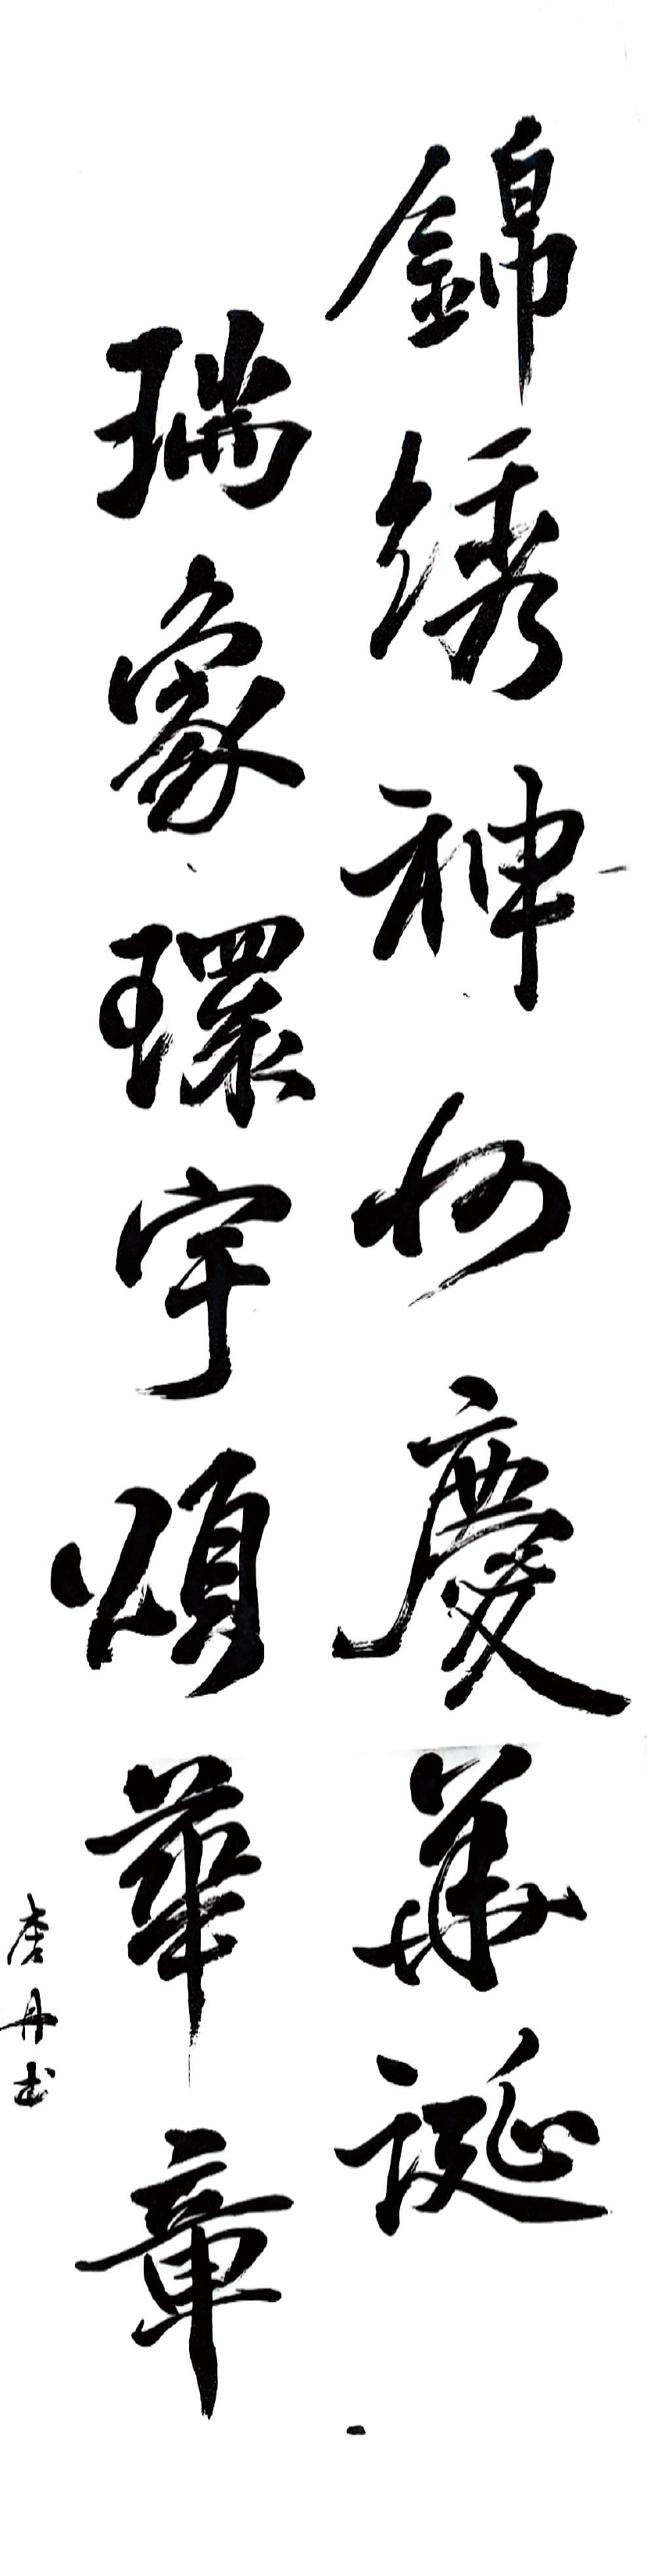 錦绣神州慶華誕
瑞象環宇頌華章
唐丹书